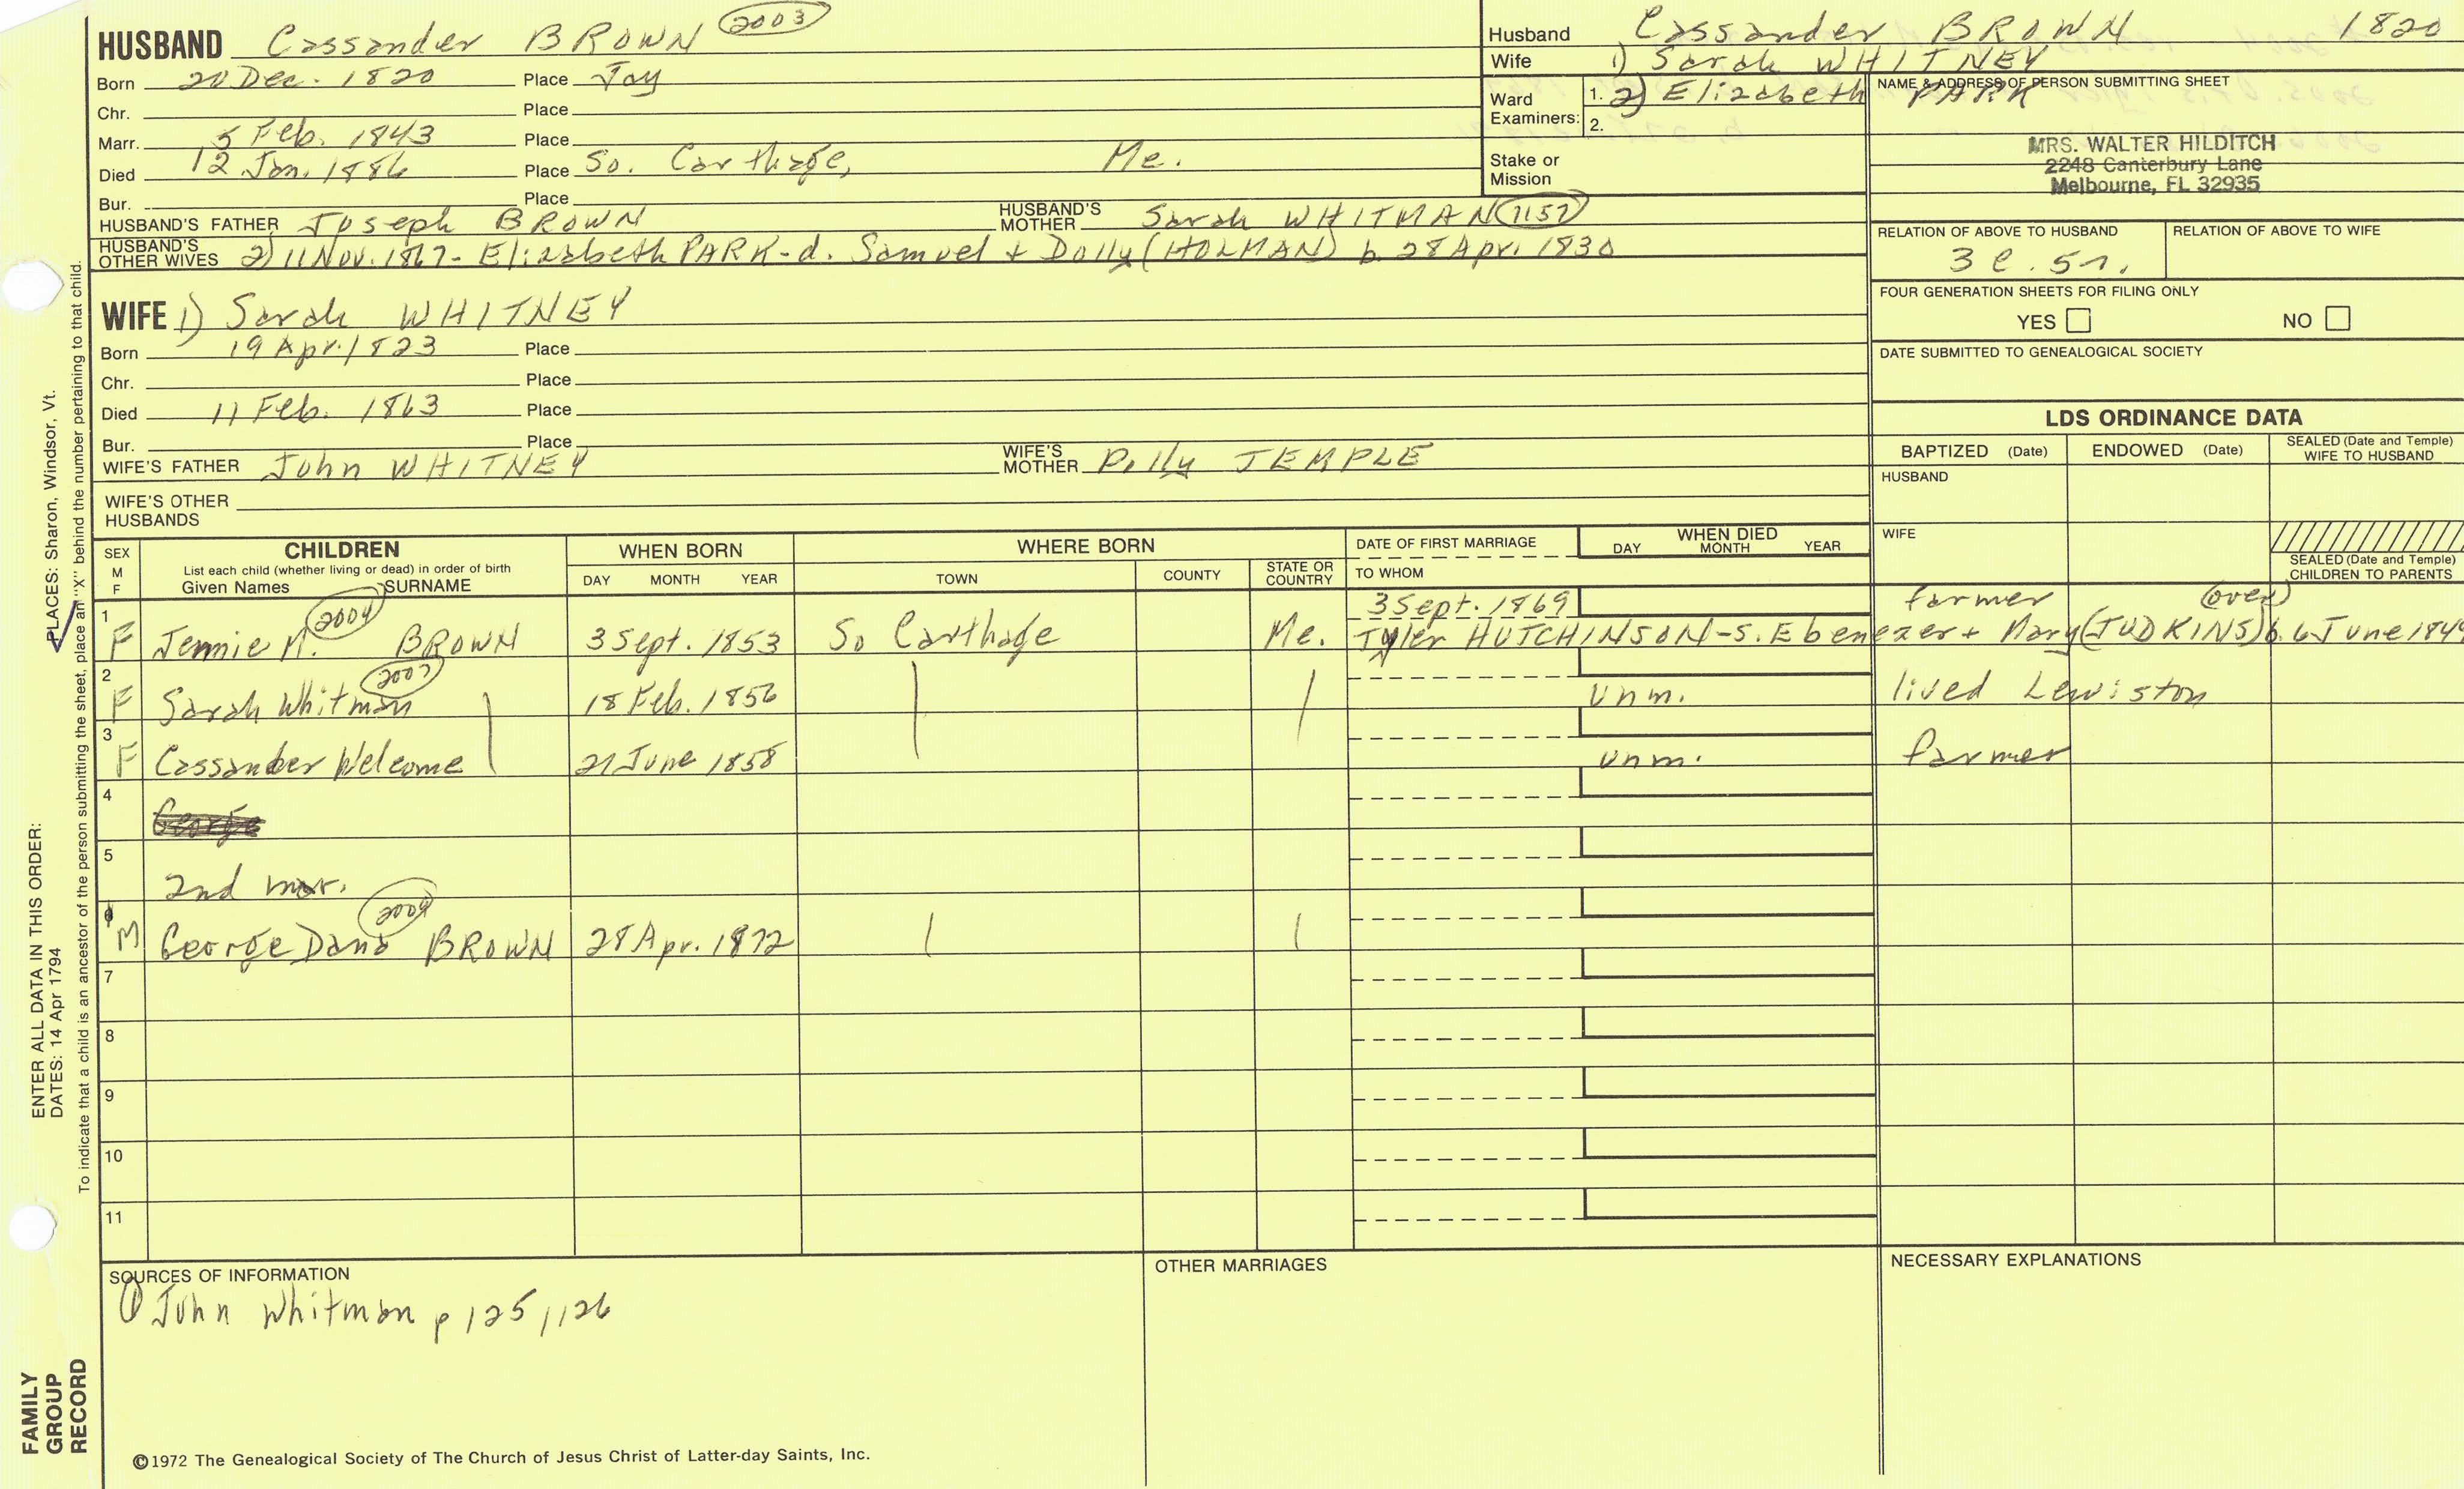 HUSBAND Cassander BROWN 2003
Born 20 Dec. 1820 Place Jay
Chr. Place
Marr. 5 Feb. 1843 Place
Died 12 Jan. 1886 Place So. Carthage, Me.
Bur. Place
HUSBAND'S FATHER Joseph BROWN HUSBAND'S MOTHER Sarah WHITMAN 1157
HUSBAND'S OTHER WIVES 2) 11 Nov. 1867- Elizabeth PARK-d. Samuel + Dolly (HOLMAN) b. 28 Apr. 1830
WIFE 1) Sarah WHITNEY
Born 19 Apr. 1823 Place
Chr. Place
Died 11 Feb. 1863 Place
Bur. Place
WIFE'S FATHER John WHITNEY WIFE'S MOTHER Polly TEMPLE
WIFE'S OTHER HUSBANDS
Husband Cassander BROWN 1820
Wife 1) Sarah WHITNEY
Ward Examiners: 1. 2) Elizabeth PARK
2.
Stake or Mission
NAME & ADDRESS OF PERSON SUBMITTING SHEET
MRS. WALTER HILDITCH
2248 Canterbury Lane
Melbourne, FL 32935
RELATION OF ABOVE TO HUSBAND RELATION OF ABOVE TO WIFE
3 c. 5r.
FOUR GENERATION SHEETS FOR FILING ONLY
YES NO
DATE SUBMITTED TO GENEALOGICAL SOCIETY
LDS ORDINANCE DATA
BAPTIZED (Date) ENDOWED (Date) SEALED (Date and Temple) WIFE TO HUSBAND
HUSBAND
WIFE
SEALED (Date and Temple) CHILDREN TO PARENTS
SEX M F CHILDREN WHEN BORN WHERE BORN DATE OF FIRST MARRIAGE WHEN DIED
List each child (whether living or dead) in order of birth DAY MONTH YEAR TOWN COUNTY STATE OR COUNTRY TO WHOM DAY MONTH YEAR
Given Names SURNAME
1 2004 3 Sept. 1869 farmer (over)
F Jennie M. BROWN 3 Sept. 1853 So Carthage Me. Tyler HUTCHINSON-s. Ebenezer + Mary (JUDKINS) b. 6 June 184
2 F Sarah Whitman 18 Feb. 1856 unm. lived Lewiston
3 F Cassander Welcome 21 June 1858 unm. farmer
4 George
5 2nd mar.
M George Dana BROWN 28 Apr. 1872
7
8
9
10
11
SOURCES OF INFORMATION
① John Whitman p 125, 126
OTHER MARRIAGES
NECESSARY EXPLANATIONS
©1972 The Genealogical Society of The Church of Jesus Christ of Latter-day Saints, Inc.
ENTER ALL DATA IN THIS ORDER:
DATES: 14 Apr 1794
PLACES: Sharon, Windsor, Vt.
To indicate that a child is an ancestor of the person submitting the sheet, place an "X" behind the number pertaining to that child.
FAMILY
GROUP
RECORD